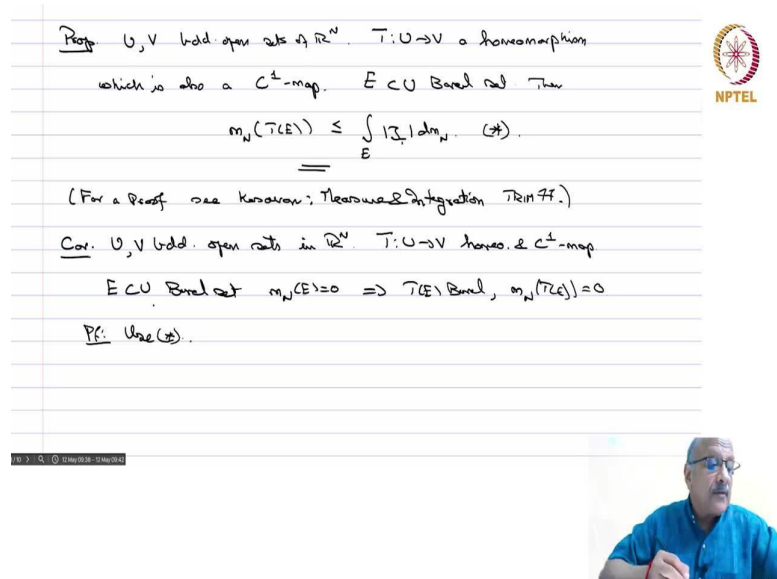 Prop. U, V bdd. open sets of ℝᴺ. T: U→V a homeomorphism
which is also a C¹-map. E ⊂ U Borel set. Then
m_N(T(E)) ≤ ∫_E |J| dm_N. (*).
(For a Proof see Kesavan: Measure & Integration TRIM 77.)
Cor. U, V bdd. open sets in ℝᴺ. T: U→V homeo. & C¹-map
E ⊂ U Borel set m_N(E)=0 ⇒ T(E) Borel, m_N(T(E))=0
Pf: Use (*).
NPTEL
/10
12 May 09:38 - 12 May 09:42